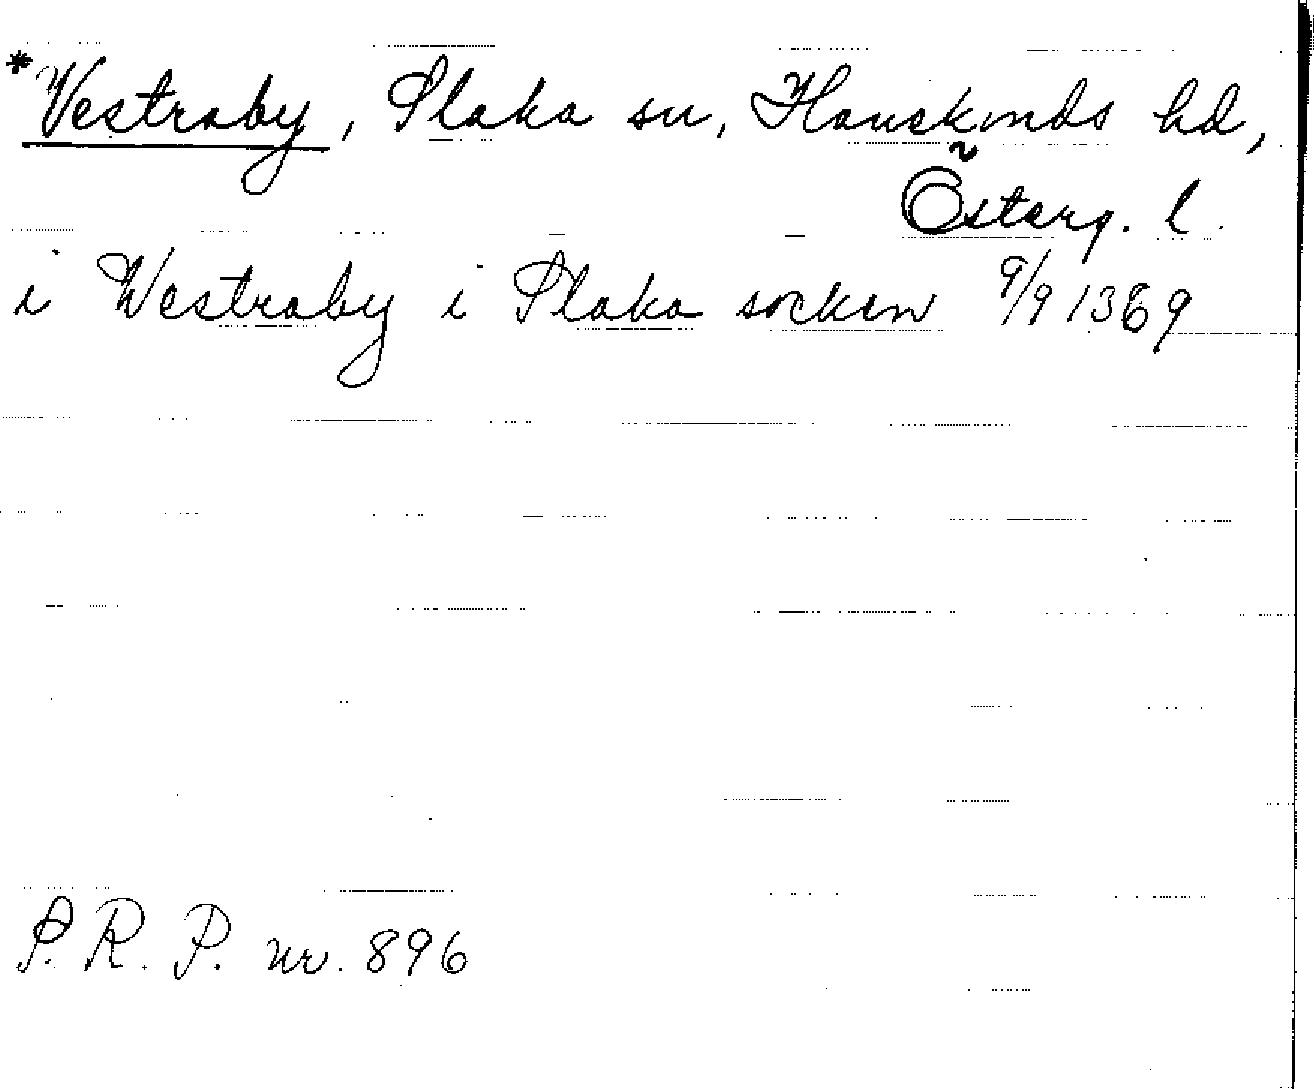 *Vestraby, Slaka sn, Hanekinds hd,
Österg. l.
i Westraby i Slaka socken 9/9 1369
S. R. P. nr. 896